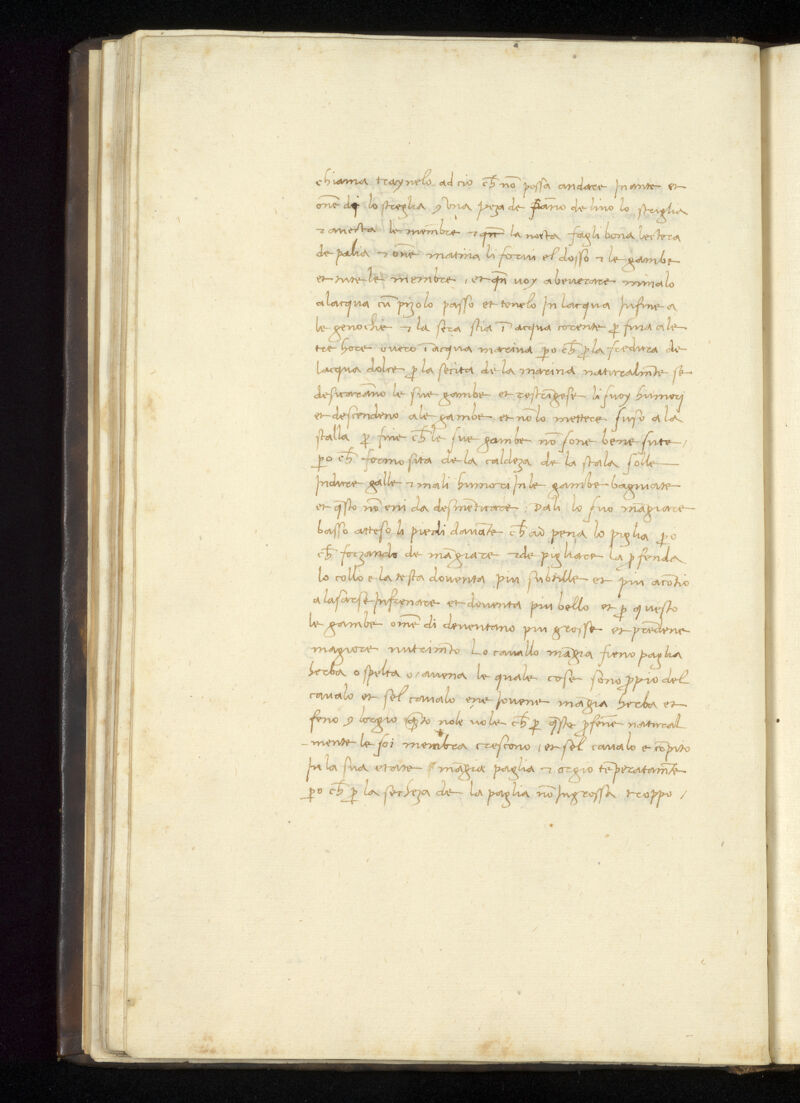 chiama traynelo ad cio ch̅ no̅ possa andare inante et
one̅ di lo streglia ⁊ una peza de pa̅no de lino lo striglia
⁊ anecta le membre ⁊ qn̅ la nocta fagli bona lectera
de palia ⁊ one̅ matina li forbi el dosso ⁊ le gambe
et tute le membre / et qn̅ voy abeverare minalo
a lacqua cu̅ pizolo passo et tenelo in lacqua infine a
le genochie ⁊ la sera stia i̅ acqua corente p̅ fina ale
tre hore overo i̅ acqua marina p̅o ch̅ p̅ la fredura de
lacqua dolce p̅ la secita de la marina naturalme̅te se̅
desicara̅no le sue gambe et restri̅gese li suoy humori
et descendeno ale gambe et no̅ lo mettere suso a la
stalla p̅ fine ch̅ le sue gambe no̅ sone bene sute /
p̅o ch̅ formosita de la caldeza de la stala solle
indure galle ⁊ mali humori in le gambe bagniate
et q̅sto no̅ eni da desme̅ticare : Dali lo suo ma̅giare
basso atteso li piedi dava̅te ch̅ ad pena lo piglia p̅o
ch̅ forzando de ma̅giare ⁊ de pigliare la p̅fenda
lo collo e la testa doventa piu subtille et piu aco̅cio
a lasarse infrenare et doventa piu bello et p̅ questo
le gambe one̅ di deventano piu grosse et pre̅dene
magiore nutrim̅to Lo cavallo ma̅gia fieno paglia
herba o spelta o / avena le quale cose sono p̅pio del
cavalo et sel cavalo ene jovene ma̅gia herba et
feno ⁊ lorgio q̅sto vole ch̅ p̅ q̅sto p̅fene̅ natural
-mente le soi membra crescono / et sel cavalo e co̅pito
in la sua etate ma̅gia paglia ⁊ orgio te̅peratame̅te
p̅o ch̅ p̅ la secheza de la paglia no̅ ingrossa troppo /